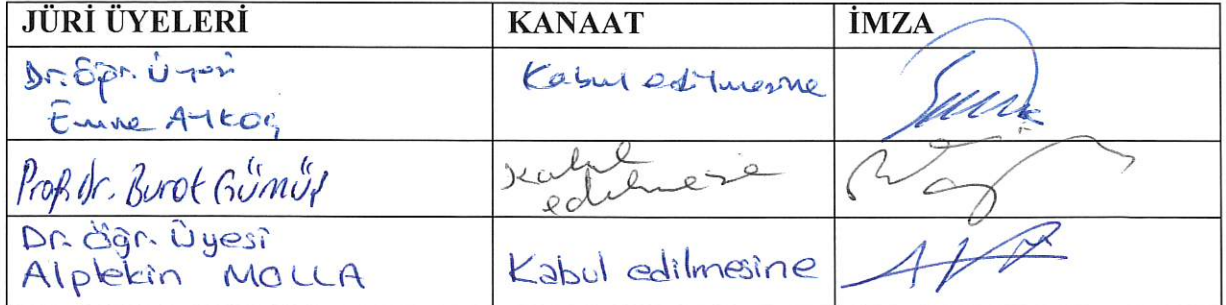 JÜRİ ÜYELERİ KANAAT İMZA
Dr. Öğr. Üyesi Kabul edilmesine
Emine
Prof. Dr. Burat Gümüş Kabul
edilmesine
Dr. Öğr. Üyesi
Alptekin MOLLA Kabul edilmesine